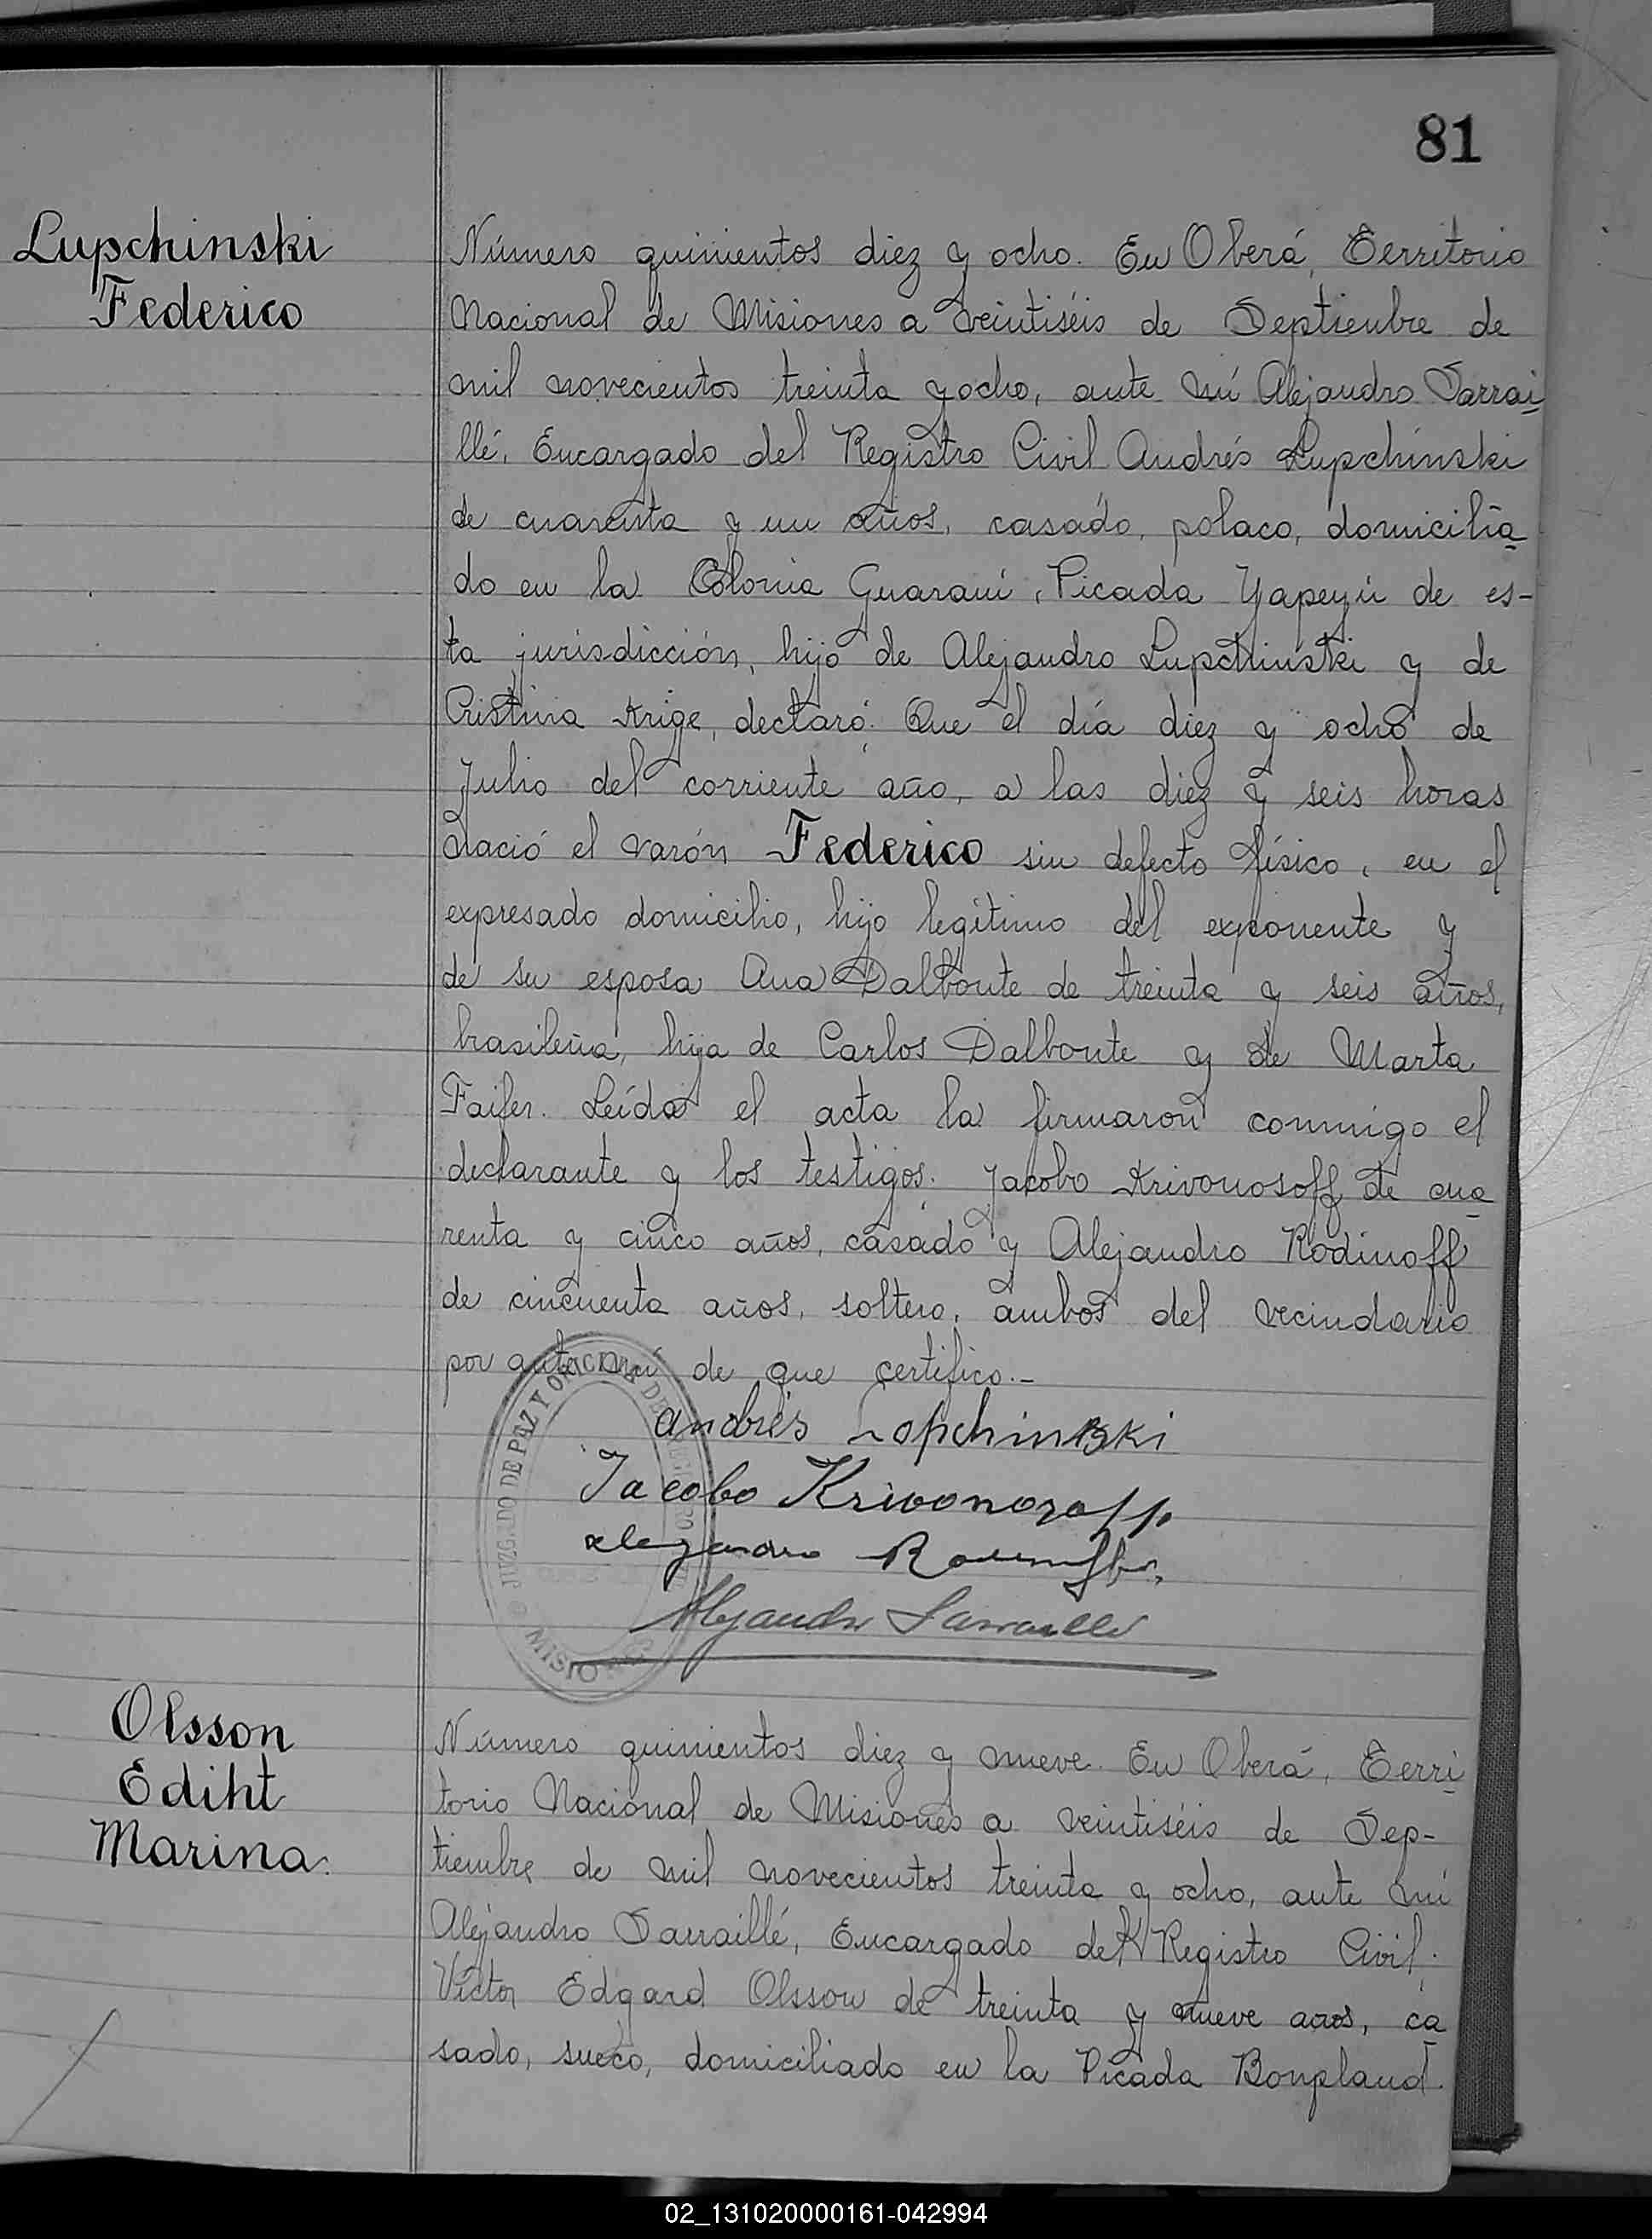 81
Lupchinski
Federico
Número quinientos diez y ocho. En Oberá, Territorio
Nacional de Misiones a veintiséis de Septiembre de
mil novecientos treinta y ocho, ante mí Alejandro Sarrai
llé, Encargado del Registro Civil Andrés Lupchinski
de cuarenta y un años, casado, polaco, domicilia
do en la Colonia Guaraní, Picada Yapeyú de es-
ta jurisdicción, hijo de Alejandro Lupchinski y de
Cristina Krige, declaró: Que el día diez y ocho de
Julio del corriente año, a las diez y seis horas
nació el varón Federico sin defecto físico, en el
expresado domicilio, hijo legítimo del exponente y
de su esposa Ana Dalbonte de treinta y seis años,
brasileña, hija de Carlos Dalbonte y de Marta
Faifer. Leída el acta la firmaron conmigo el
declarante y los testigos: Jacobo Krivonosoff de cua
renta y cinco años, casado y Alejandro Rodinoff
de cincuenta años, soltero, ambos del vecindario
por ante mí de que certifico.-
Andrés Lopchinski
Jacobo Krivonozoff
Alejandro
Alejandro Sarraillé
JUZGADO DE PAZ Y OFICINA DEL REGISTRO CIVIL
MISIONES
Olsson
Ediht
Marina.
Número quinientos diez y nueve. En Oberá, Terri
torio Nacional de Misiones a veintiséis de Sep-
tiembre de mil novecientos treinta y ocho, ante mí
Alejandro Sarraillé, Encargado del Registro Civil:
Víctor Edgard Olsson de treinta y nueve años, ca
sado, sueco, domiciliado en la Picada Bonpland.
02_131020000161-042994